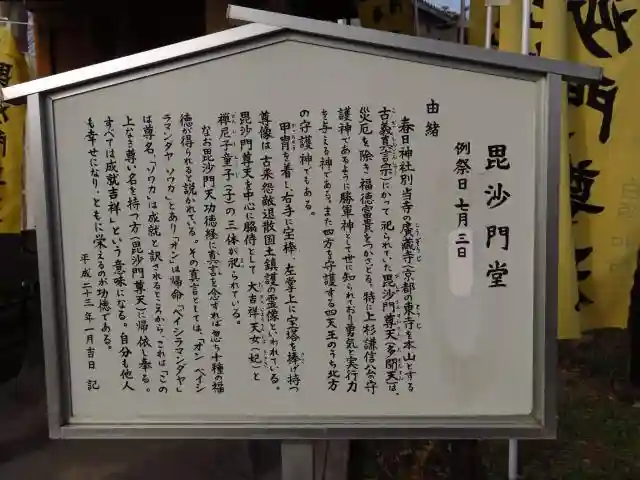 毘沙門堂
例祭日 七月三日
由緒
春日神社別当寺の廣蔵寺(京都の東寺を本山とする
古義真言宗)にかつて祀られていた毘沙門尊天(多聞天)は、
災厄を除き福徳富貴をつかさどる。特に上杉謙信公の守
護神であるように勝軍神として世に知られており勇気と実行力
を与える神である。また四方を守護する四天王のうち北方
の守護神でもある。
甲冑を着し、右手に宝棒、左掌上に宝塔を捧げ持つ
尊像は古来怨敵退散国土鎮護の霊像といわれている。
毘沙門尊天を中心に脇侍として大吉祥天女(妃)と
禅尼子童子(子)の三体が祀られている。
なお毘沙門天功徳経に真言を念ずれば忽ち十種の福
徳が得られると説かれている。その真言としては、「オン ベイシ
ラマンダヤ ソワカ」とあり「オン」は帰命「ベイシラマンダヤ」
は尊名、「ソワカ」は成就と訳されるところから、これは「この
上なき尊い名を持つ方(毘沙門尊天)に帰依し奉る。
すべては成就吉祥」という意味になる。自分も他人
も幸せになり、ともに栄えるのが功徳である。
平成二十三年一月吉日 記
沙門尊